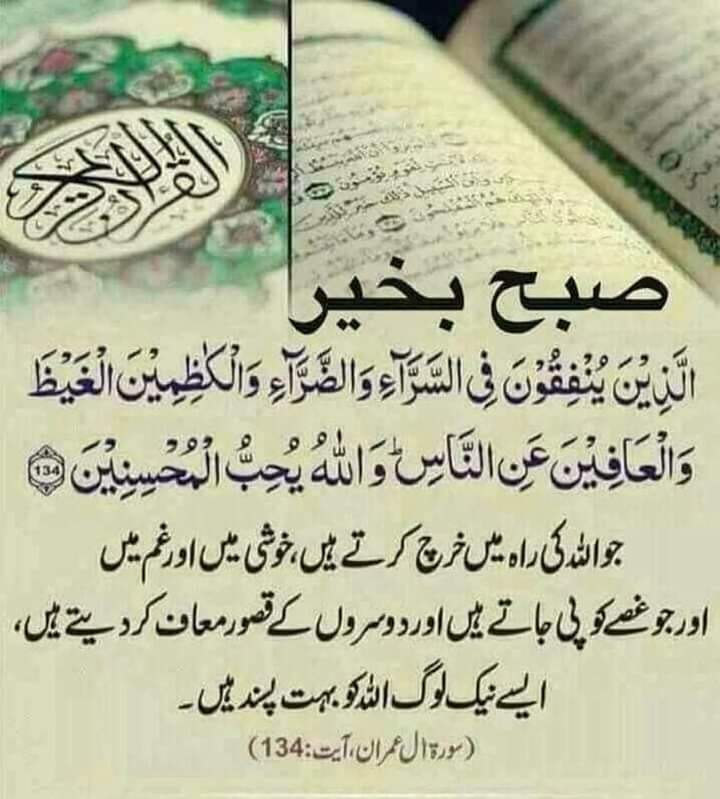 القرآن الكريم
صبح بخیر
الَّذِیْنَ یُنْفِقُوْنَ فِی السَّرَّآءِ وَالضَّرَّآءِ وَالْکٰظِمِیْنَ الْغَیْظَ
وَالْعَافِیْنَ عَنِ النَّاسِ ؕ وَاللّٰهُ یُحِبُّ الْمُحْسِنِیْنَ 134
جو اللہ کی راہ میں خرچ کرتے ہیں، خوشی میں اور غم میں
اور جو غصے کو پی جاتے ہیں اور دوسروں کے قصور معاف کر دیتے ہیں،
ایسے نیک لوگ اللہ کو بہت پسند ہیں۔
(سورۃ اٰل عمران، آیت:134)